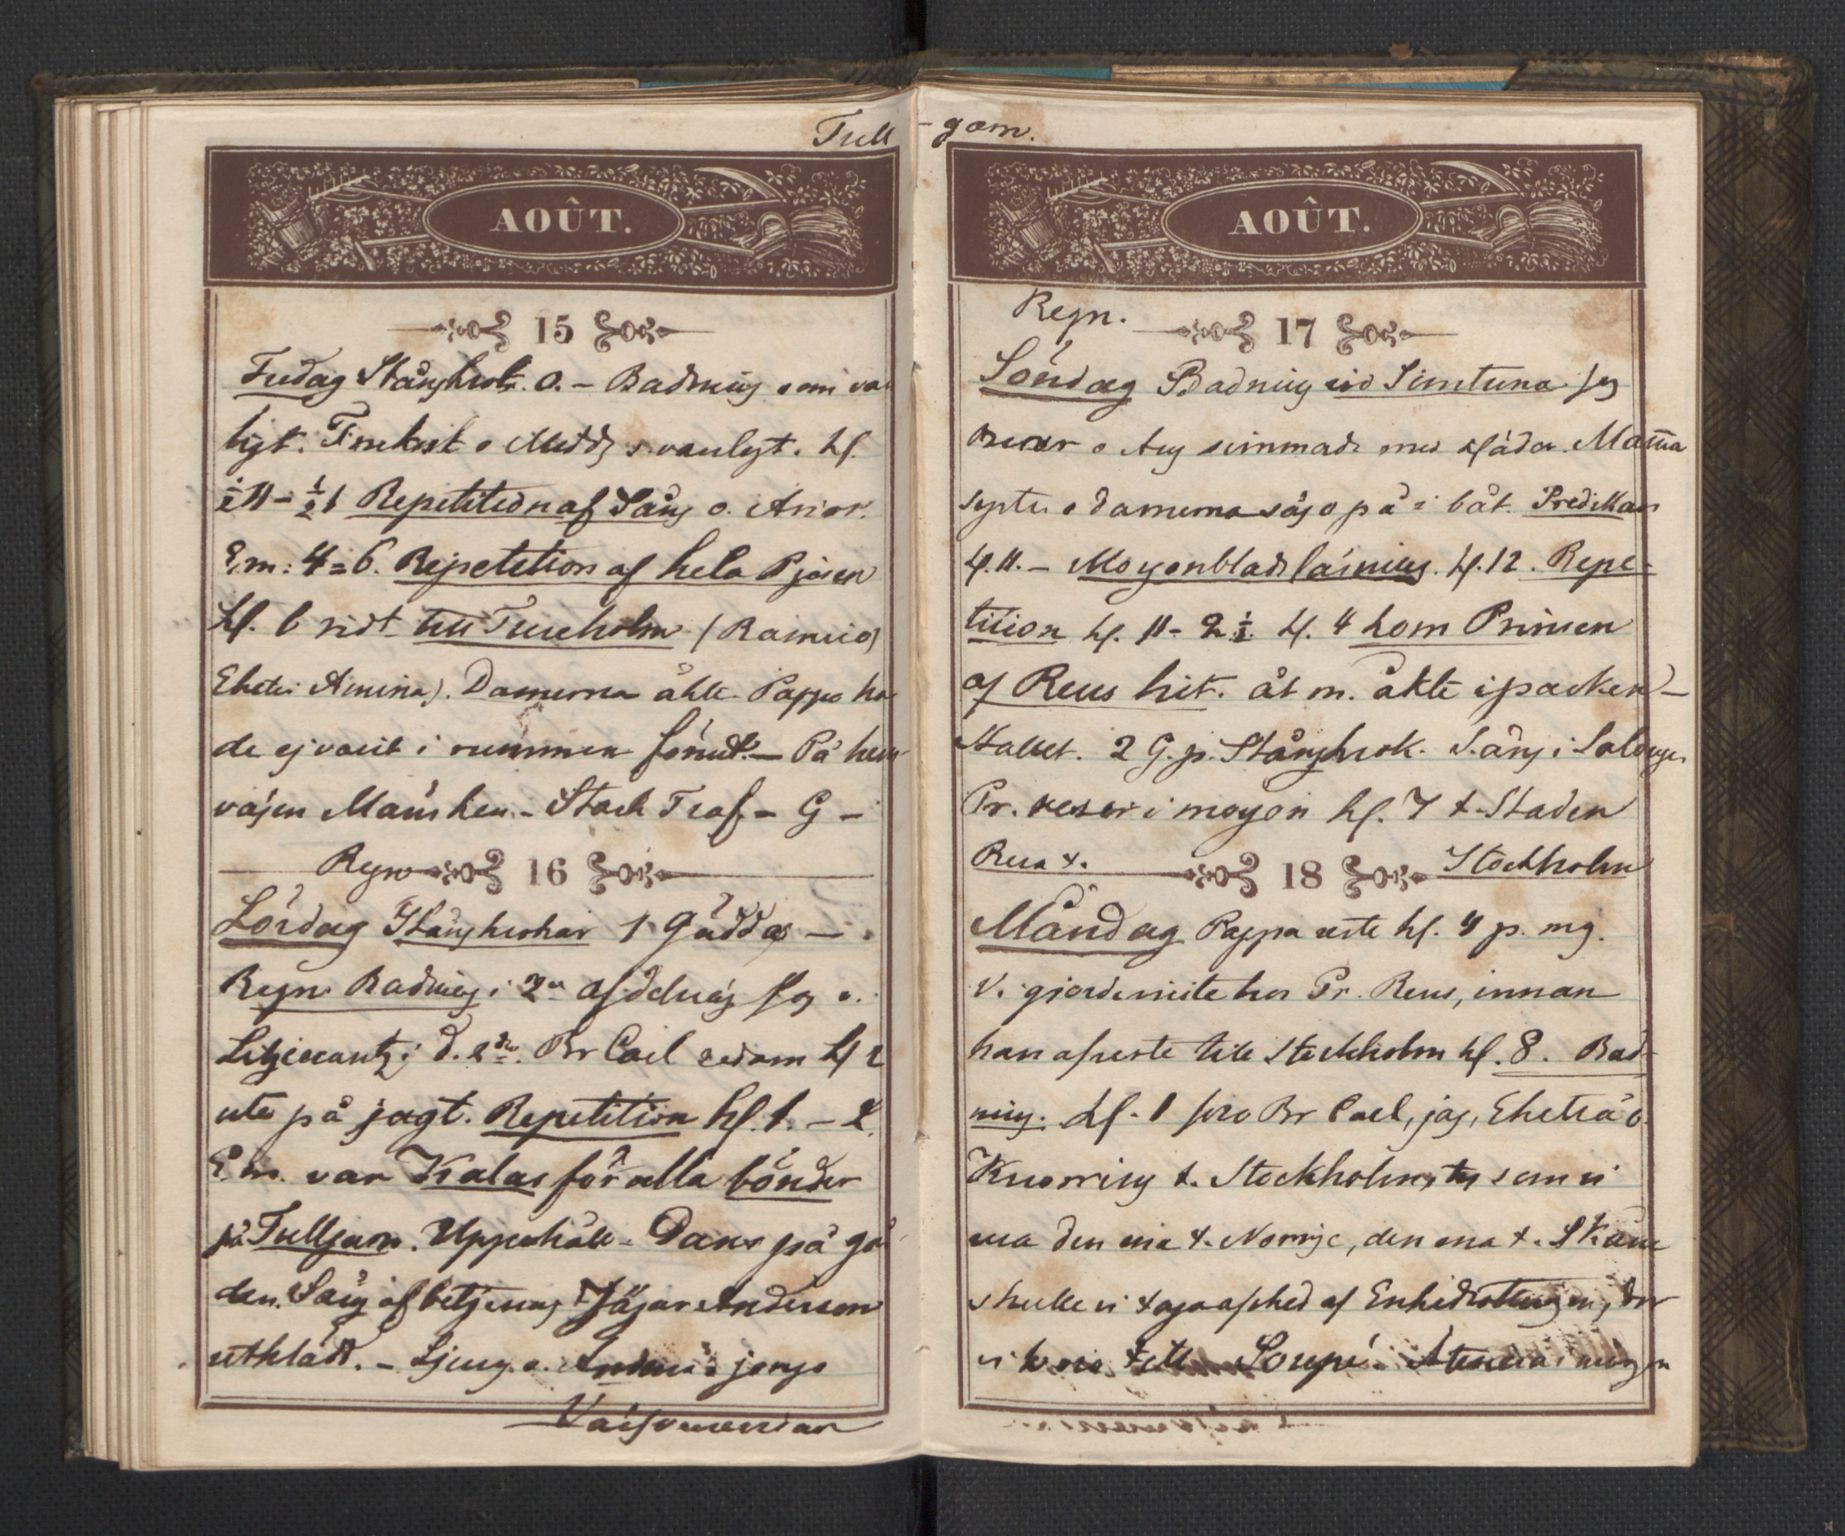 Tull-garn.
AOÛT.
15
Fredag Stångkrok. o. - Badning som va-
ligt. Frukost o Midd s. vanligt. kl.
½ 11 - ½ 1 Repetition af Sång o. Arior.
Em: 4 = 6. Repetition af hela Pjesen
kl. 6 ridt till Tureholm (Ramiro)
Amina). Damerna åkte. Pappa ha-
de ej varit i rummen förut. - På hem-
vägen Månsken. - Stark Traf - G -
Regn
16
Lördag Stångkrokar 1 Gädda -
Regn Badning i 2n afdelning Jag o.
i d. 2dra. Br Carl redan kl 2
ute på jagt. Repetition kl. 1. - 2.
Em. var Kalas för alla bönder
på Tullgarn. Uppehåll - Dans på går-
den. Sång af betjening Jägar Anderson
utklädd. - Ljung. o. jonge
AOÛT.
Regn.
17
Söndag Badning vid Simtuna. Jag
o Aug simmade med kläder. Mamma
syster o damerna sågo på i båt. Predikan
kl. 11. - Morgonbladsläsning. kl. 12. Repe-
tition kl. 11 - 2 ½ kl. 4 kom Prinsen
af Reus hit. åt m. åkte i parken -
Stallet. 2 G. p. Stångkrok. Sång i Salongen
Pr. reser i morgon kl. 7 t. Staden
Reus t.
18
Stockholm
Måndag Pappa reste kl. 4 p. mg.
Vi gjorde visite hos Pr. Reus, innan
han afreste till Stockholm kl. 8. Bad-
ning. kl. 1 foro Br Carl, jag, o
Knorring t. Stockholm, ty som vi
resa den ena t. Norrige, den ena t. Skåne
skulle vi taga afsked af Enkedrottningen, der
vi voro till Soupé. Återresa i morgon